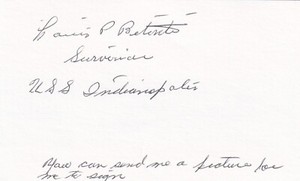 Louis P Bitonti
Survivor
USS Indianapolis
You can send me a picture for
me to sign